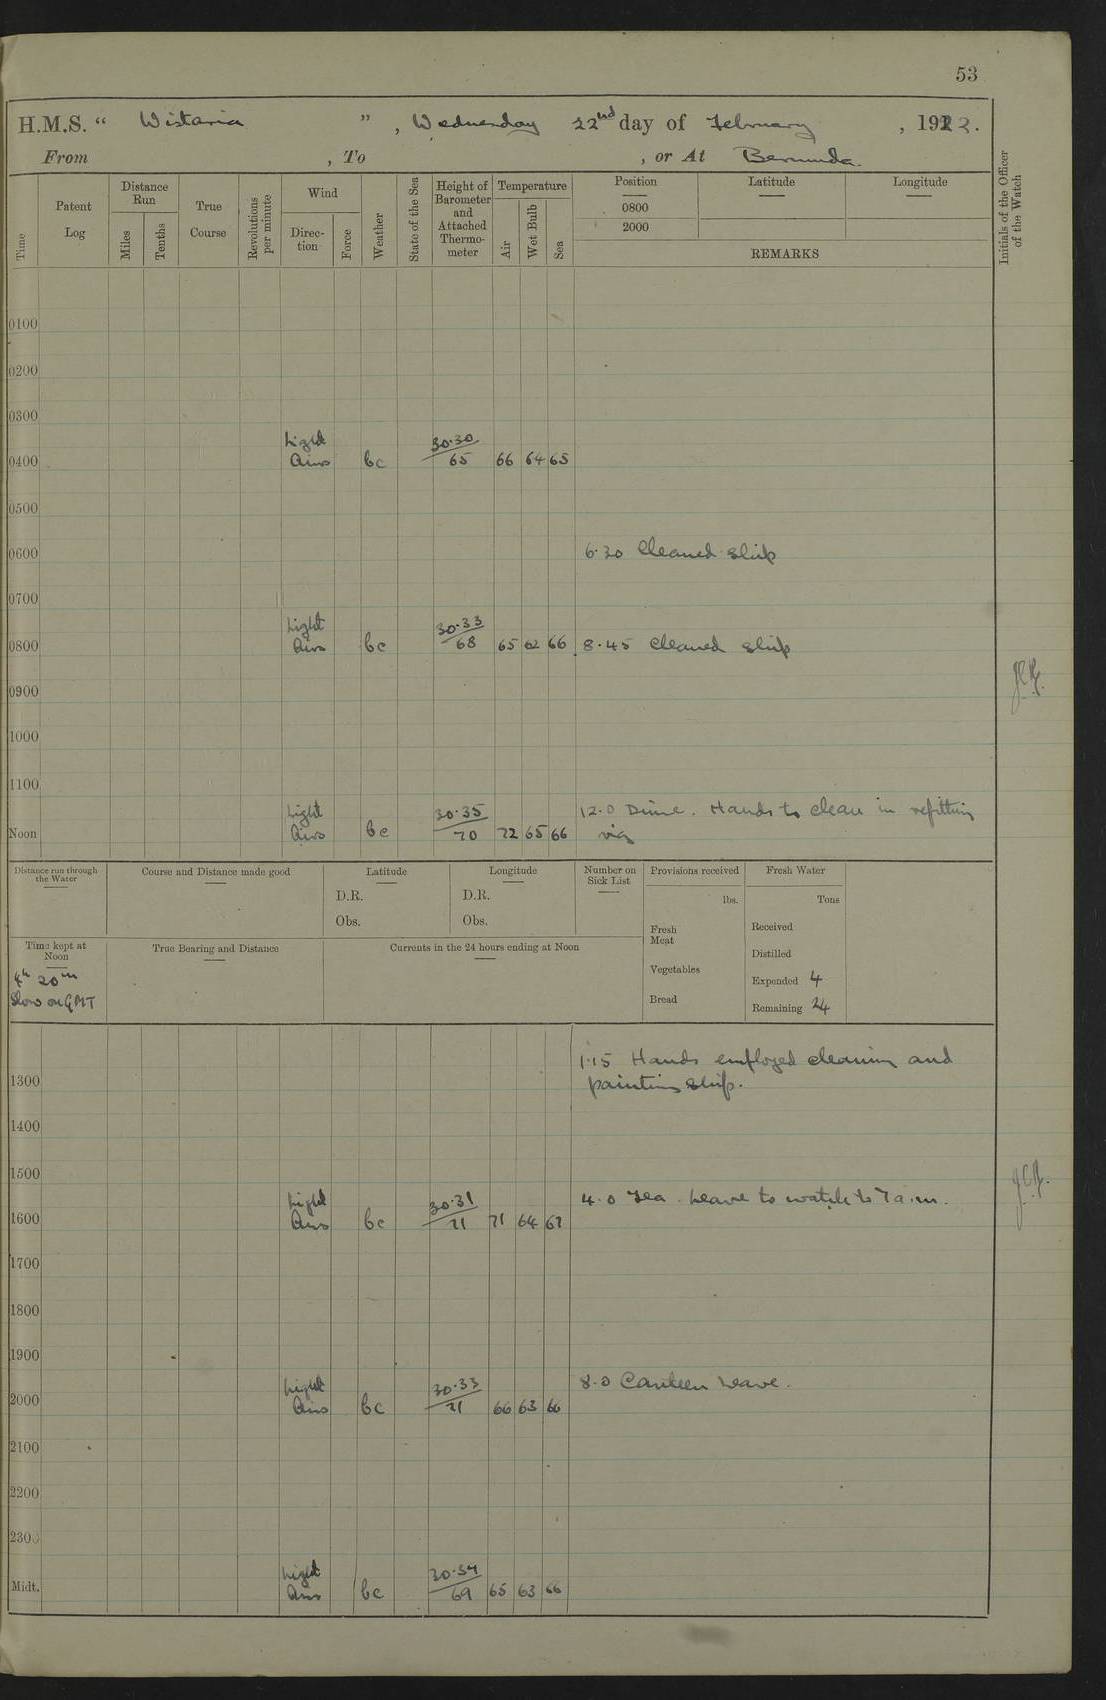 53
H.M.S. “ Wistaria ” , Wednesday 22nd day of February , 1922.
From , To , or At Bermuda.
Time
Patent Log
Distance Run
Miles
Tenths
True Course
Revolutions per minute
Wind
Direc-tion
Force
Weather
State of the Sea
Height of Barometer and Attached Thermo-meter
Temperature
Air
Wet Bulb
Sea
Position
0800
2000
Latitude
Longitude
REMARKS
Initials of the Officer of the Watch
0100
0200
0300
Light 30·30
0400 Airs bc 65 66 64 65
0500
0600 6·30 Cleaned ship
0700
Light 30·33
0800 Airs bc 68 65 62 66 8·45 Cleaned ship
0900
1000
1100
Light 30·35 12·0 Dinner. Hands to clean in refitting
Noon Airs bc 70 72 65 66 rig
Distance run through the Water
Course and Distance made good
Latitude
D.R.
Obs.
Longitude
D.R.
Obs.
Number on Sick List
Provisions received
lbs.
Fresh Meat
Vegetables
Bread
Fresh Water
Tons
Received
Distilled
Expended 4
Remaining 24
Time kept at Noon
4h 20m
Slow on GMT
True Bearing and Distance
Currents in the 24 hours ending at Noon
1·15 Hands employed cleaning and
1300 painting ship.
1400
1500
Light 30·31 4·0 Tea. Leave to watch to 7 a.m.
1600 Airs bc 71 71 64 67
1700
1800
1900
Light 30·33 8·0 Canteen Leave.
2000 Airs bc 71 66 63 66
2100
2200
2300
Light 30·34
Midt. Airs bc 69 65 63 66